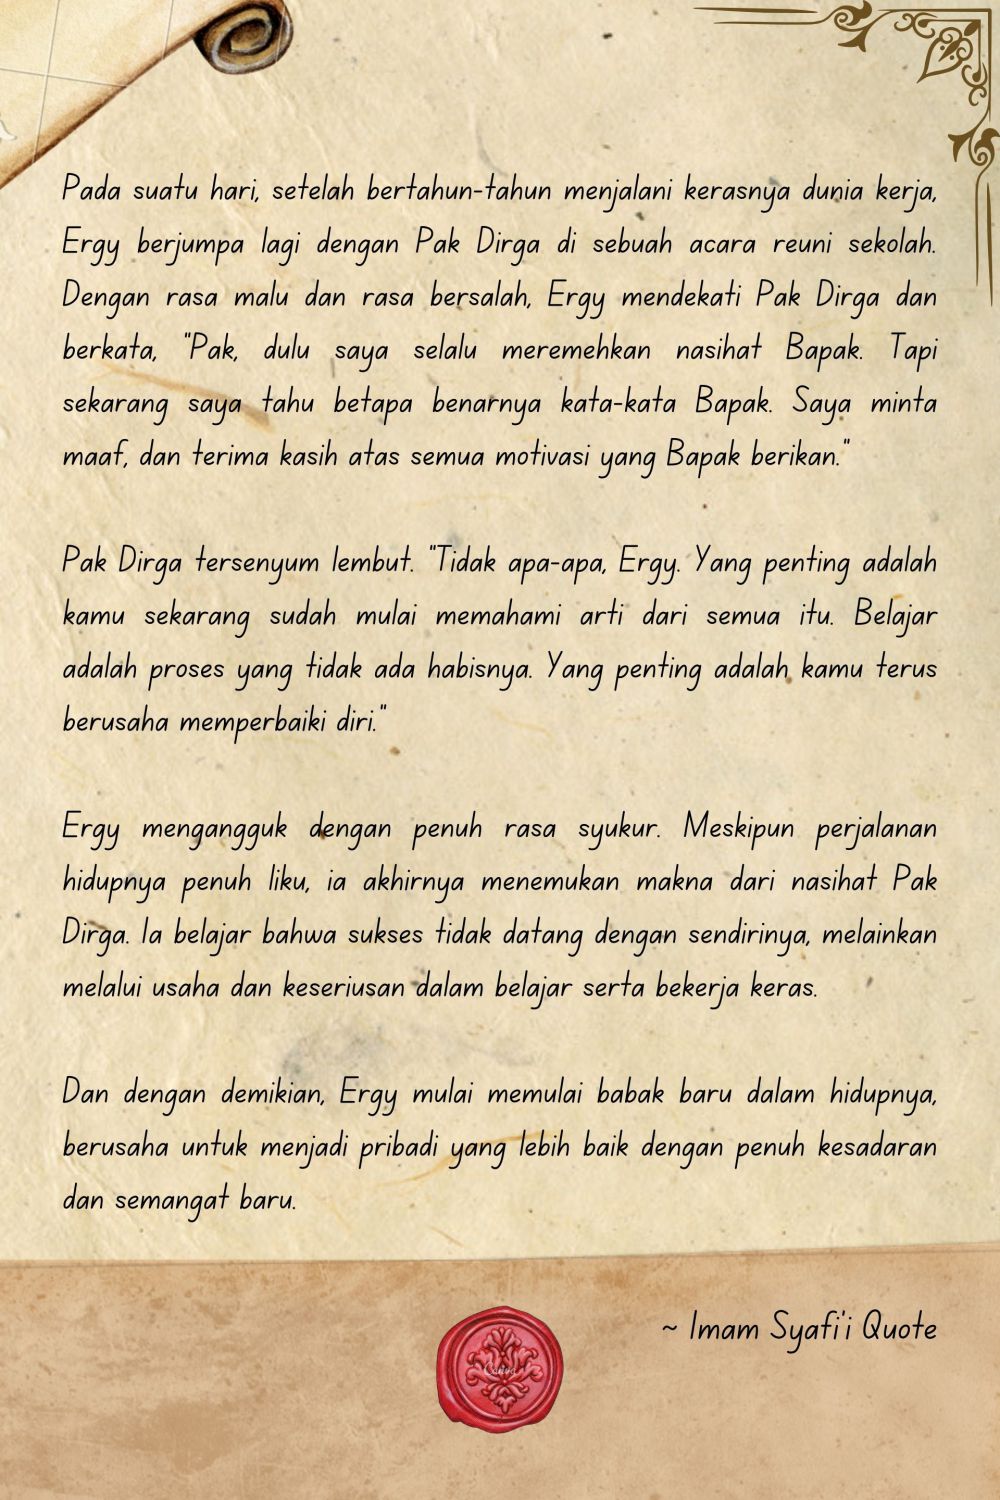 Pada suatu hari, setelah bertahun-tahun menjalani kerasnya dunia kerja,
Ergy berjumpa lagi dengan Pak Dirga di sebuah acara reuni sekolah.
Dengan rasa malu dan rasa bersalah, Ergy mendekati Pak Dirga dan
berkata, "Pak, dulu saya selalu meremehkan nasihat Bapak. Tapi
sekarang saya tahu betapa benarnya kata-kata Bapak. Saya minta
maaf, dan terima kasih atas semua motivasi yang Bapak berikan."
Pak Dirga tersenyum lembut. "Tidak apa-apa, Ergy. Yang penting adalah
kamu sekarang sudah mulai memahami arti dari semua itu. Belajar
adalah proses yang tidak ada habisnya. Yang penting adalah kamu terus
berusaha memperbaiki diri."
Ergy mengangguk dengan penuh rasa syukur. Meskipun perjalanan
hidupnya penuh liku, ia akhirnya menemukan makna dari nasihat Pak
Dirga. Ia belajar bahwa sukses tidak datang dengan sendirinya, melainkan
melalui usaha dan keseriusan dalam belajar serta bekerja keras.
Dan dengan demikian, Ergy mulai memulai babak baru dalam hidupnya,
berusaha untuk menjadi pribadi yang lebih baik dengan penuh kesadaran
dan semangat baru.
~ Imam Syafi'i Quote
Canva